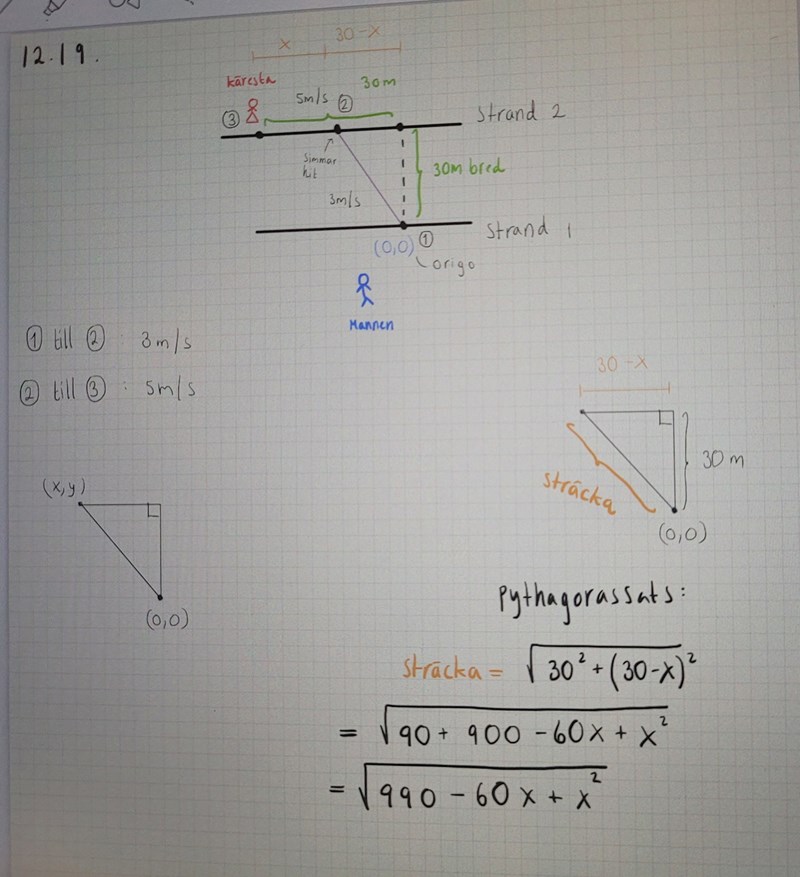 12.19.
x 30-x
käresta
5m/s ② 30m
③
Strand 2
simmar
hit
30m bred
3m/s
Strand 1
(0,0) ①
origo
Mannen
① till ② : 3m/s
② till ③ : 5m/s
30-x
30 m
sträcka
(0,0)
(x,y)
(0,0)
Pythagorassats:
sträcka = √30² + (30-x)²
= √90 + 900 - 60x + x²
= √990 - 60x + x²